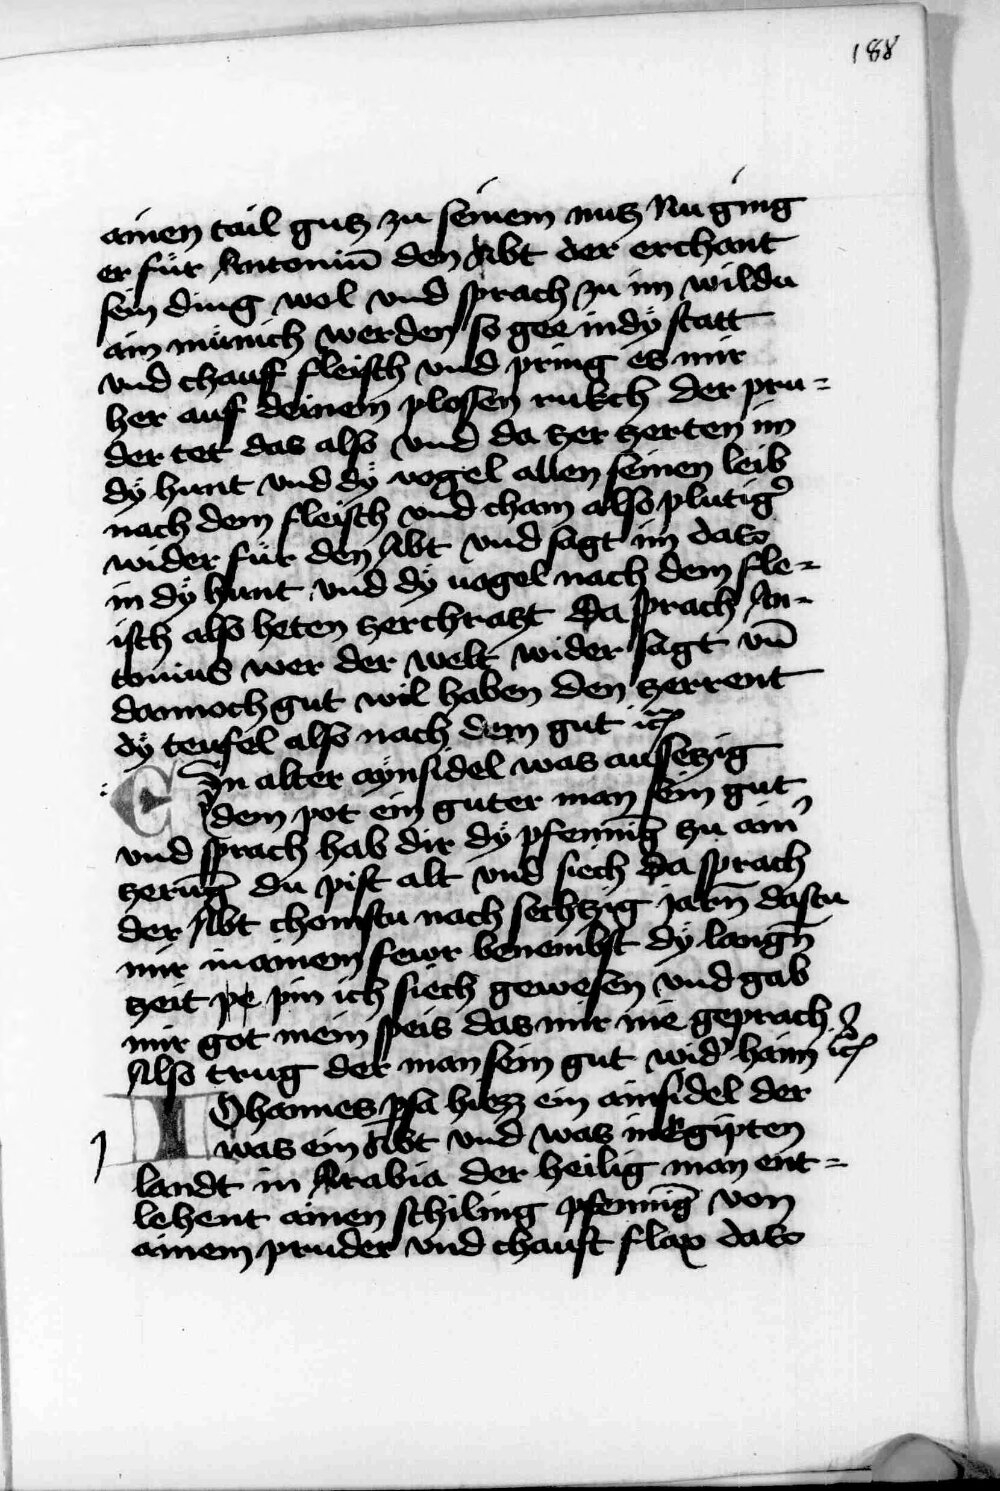 188
ainen tail gutz zu seinem nutz Nu ging
er für Antoniū den Abt der erchant
sein ding wol vnd sprach zu im wildu
ain münich werden so gee in dÿ statt
vnd chauff fleisch vnd pring es mir
her auf deinem plossen rukch der pru=
der tet das also vnd da zer zerten im
dÿ hunt vnd dÿ vogel allen seinen leib
nach dem fleisch vnd cham also plutig̉
wider für den Abt vnd sagt im das
in dÿ hunt vnd dÿ uogel nach dem fle=
isch also heten zerchratzt Da sprach An=
tonius wer der welt wider sagt vn̄
dannoch gut wil haben den zerrent
dÿ teufel also nach dem gut
Ein alter aÿnsidel was aussetzig
dem pot ein guter man sein gut
vnd sprach hab dir dÿ pfenninḡ zu ain̉
zerūg du pist alt vnd siech Da sprach
der Abt chomstu nach sechtzig jarn̄ dastu
mir in ainem fewr benembst dÿ langn̄
zeit pin ich siech gewesen vnd gab
mir got mein speis das mir nie geprach
Also trug der man sein gut wid̉ haim
IOhannes hiezz ein ainsidel der
was ein Abt vnd was in Egipten
landt in Arabia der heilig man ent=
lehent ainen schiling pfenninḡ von
ainem pruder vnd chauft flax das